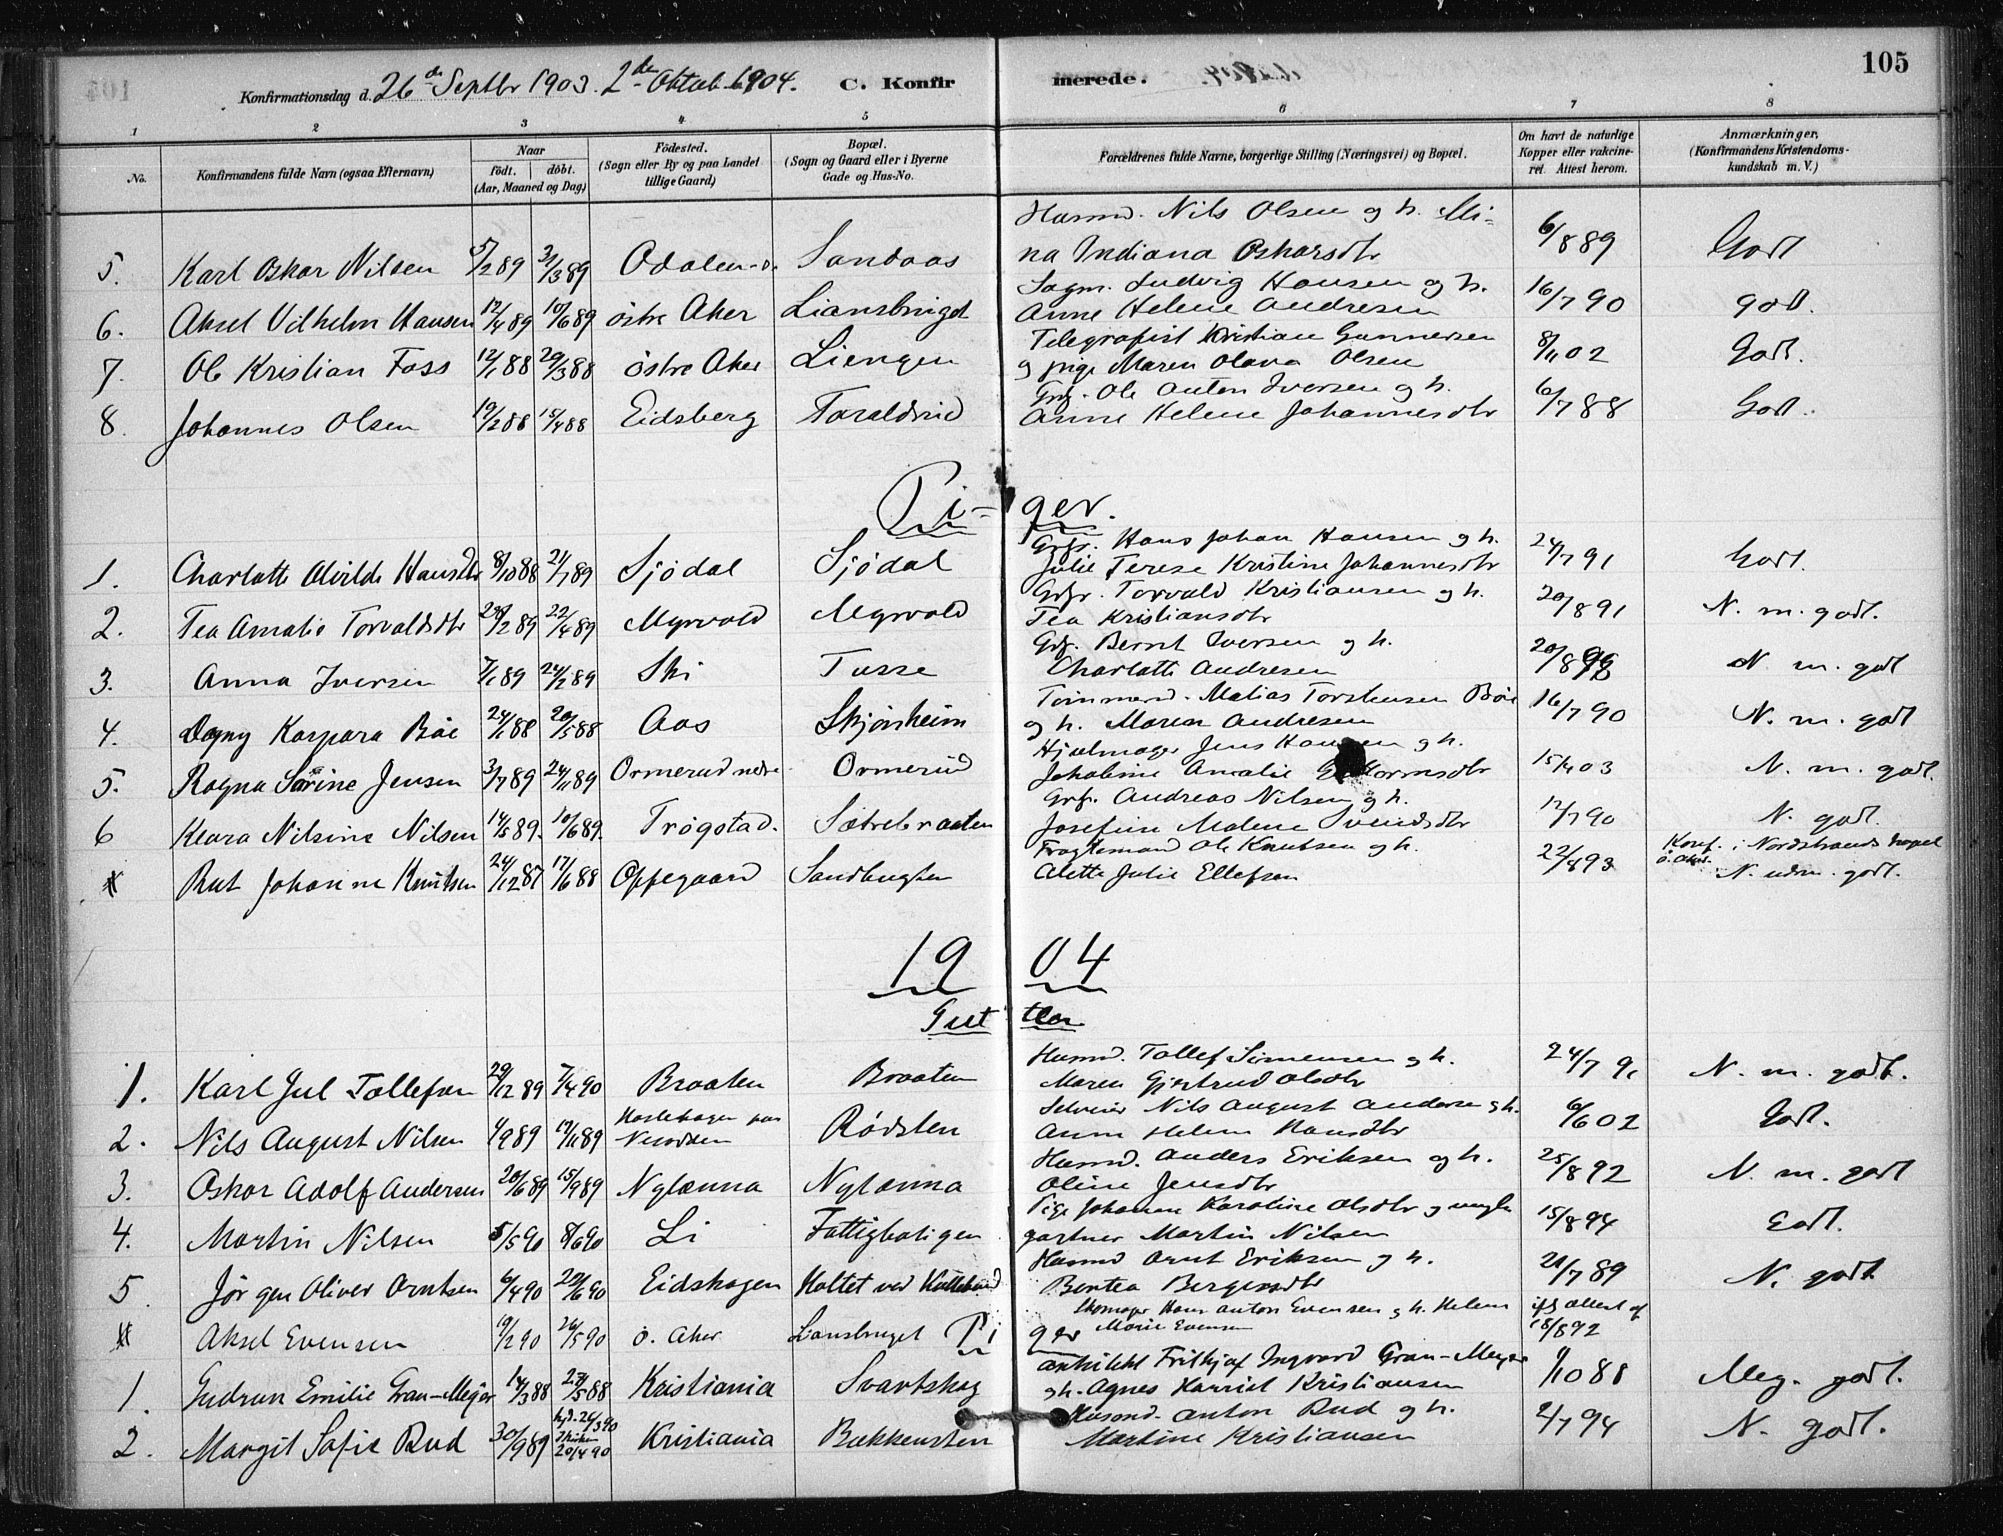 105
Konfirmationsdag d. 26de Septbr 1903. 2de Oktob. 1904. C. Konfirmerede.
1 2 3 4 5 6 7 8
No. Konfirmandens fulde Navn (ogsaa Efternavn) Naar født. døbt. (Aar, Maaned og Dag) Fødested. (Sogn eller By og paa Landet tillige Gaard) Bopæl. (Sogn og Gaard eller i Byerne Gade og Hus-No. Forældrenes fulde Navne, borgerlige Stilling (Næringsvei) og Bopæl. Om havt de naturlige Kopper eller vakcineret. Attest herom. Anmærkninger, (Konfirmandens Kristendomskundskab m. V.)
5. Karl Oskar Nilsen 5/2 89 31/3 89 Odalen Sandaas Husmd. Nils Olsen og h. Mina Indiana Oskarsdtr 6/8 89 Godt
6. Aksel Vilhelm Hansen 12/4 89 10/6 89 østre Aker Liansbruget Sagm. Ludvig Hansen og h. Anne Helene Andresen 16/7 90 godt.
7. Ole Kristian Foss 12/1 88 29/3 88 østre Aker Liengen Telegrafist Kristian Gunnersen og pige Maren Olava Olsen 8/11 02 Godt.
8. Johannes Olsen 19/2 88 15/4 88 Eidsberg Toraldrud Ole Anton Iversen og h. Anne Helene Johannesdtr 6/7 88 Godt.
Pi-ger.
1. Charlotte Alvilde Hansdtr 8/10 88 21/7 89 Sjødal Sjødal Grbr. Hans Johan Hansen og h. Julie Terese Kristine Johannesdtr 24/7 91 Godt.
2. Tea Amalie Torvaldsdtr 22/4 89 Myrvold Myrvold Torvald Kristiansen og h. Tea Kristiansdtr 20/8 91 N. m. godt.
3. Anna Iversen 7/1 89 24/2 89 Ski Tusse Bernt Iversen og h. Charlotte Andresen N. m. godt
4. Dagny Kaspara Bøe 24/1 88 20/5 88 Aas Skjønheim Tømmermd. Matias Torstensen Bøe og h. Maren Andresen 16/7 90 N. m. godt
5. Ragna Sørine Jensen 3/7 89 24/11 89 Ormerud nedre Ormerud Hjulmager Jens Hansen og h. Amalie 15/4 03 N. m. godt.
6 Klara Nilsine Nilsen 14/5 89. 10/6 89. Trøgstad. Sætrebraaten Andreas Nilsen og h. Josefine Malene Svendsdtr 12/7 90 N. godt.
Rut Johanne Knutsen 24/12 87 17/6 88 Oppegaard Sandbugten Fragtemand Ole Knutsen og h. Alette Julie Ellefsen 22/8 93 Konf. i Nordstrands kapel ø. Aker. N. udm. godt.
1904
Gutter
1. Karl Jul Tollefsen 29/12 89 7/4 90 Braaten Braaten Husmd. Tollef Simensen og h. Maren Gjertrud Olsdtr 24/7 91 N. m. godt.
2. Nils August Nilsen 1/9 89 17/11 89 Haslehagen paa Nesodden Rødsten Selveier Nils August Andersen og h. Anne Helene Hansdtr 6/6 02 Godt.
3. Oskar Adolf Andersen 20/6 89 15/9 89 Nylænna Nylænna Husmd. Anders Eriksen og h. Oline Jensdtr 25/8 92 N. m. godt
4. Martin Nilsen 5/5 90 8/6 90 Li Fattigboligen Pige Johanne Karoline Olsdtr og gartner Martin Nilsen 15/8 94 Godt.
5. Jørgen Oliver Arntsen 6/4 90 29/6 90 Eidshagen Holtet ved Husmd Arnt Eriksen og h. Bertea 21/7 89 N. godt
Aksel Evensen 19/2 90 26/5 90 ø. Aker Liansbruget Skomager Hans Anton Evensen og h. Helene Marie Evensen ifg attest af 18/8 92
Piger
1. Gudrun Emilie Gran-Meyer 14/3 88 Kristiania Svartskog arkitekt Frithjof Ingvard Gran-Meyer og h. Agnes Harriet Kristiansen 9/10 88 Meg. godt.
2. Margit Sofie Rud 30/9 89 20/4 90 Kristiania Bækkensten Husmd. Anton Rud og h. Martine Kristiansen 2/7 94 N. godt.